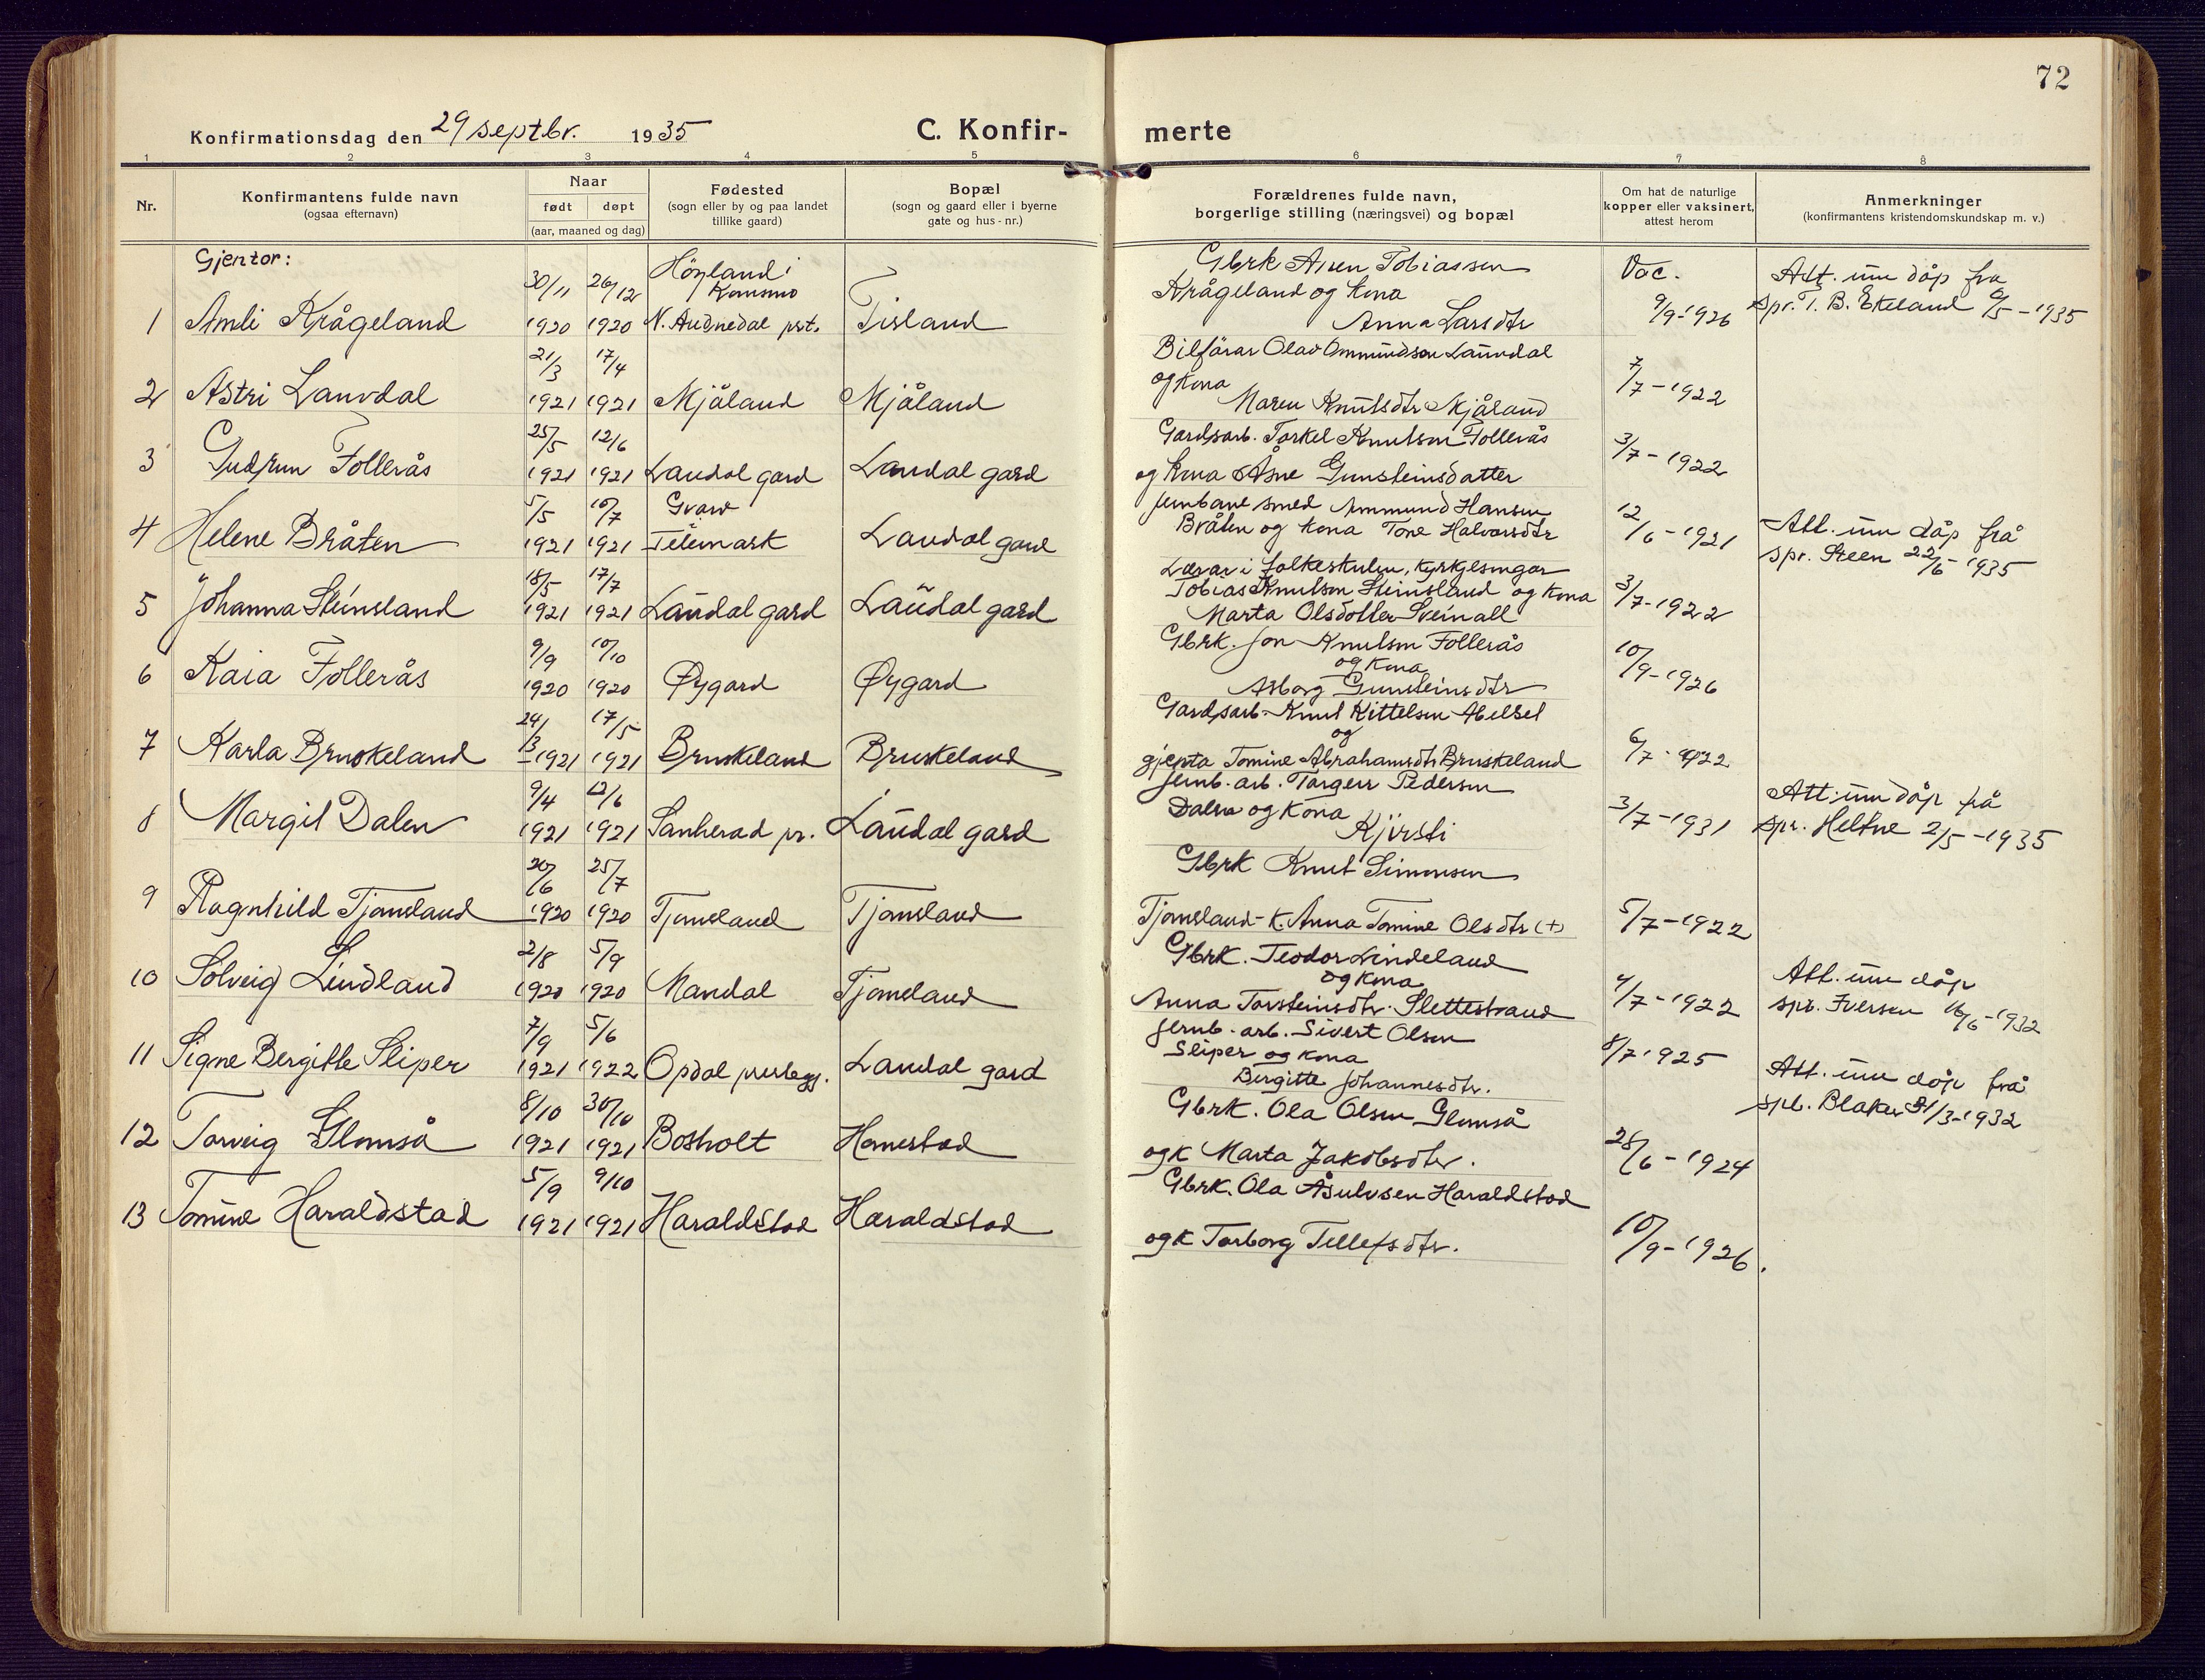 72
Konfirmationsdag den 29 septbr. 1935
C. Konfir-
merte
1 2 3 4 5 6 7 8
Nr.
Konfirmantens fulde navn
(ogsaa efternavn)
Naar
født døpt
(aar, maaned og dag)
Fødested
(sogn eller by og paa landet
tillike gaard)
Bopæl
(sogn og gaard eller i byerne
gate og hus-nr.)
Forældrenes fulde navn,
borgerlige stilling (næringsvei) og bopæl
Om hat de naturlige
kopper eller vaksinert,
attest herom
Anmerkninger
(konfirmantens kristendomskundskap m. v.)
Gjentor:
30/11 26/12 Höyland i
Konsmo
1 Amli Krågeland 1920 1920 N. Audnedal pst. Tisland
Gbrk Anen Tobiassen
Krågeland og kona
Anna Larsdtr
Vac.
9/9-1926
Att. um dåp fra
spr. T. B. Ekeland 6/5-1935
21/3 17/4
2 Astri Lauvdal 1921 1921 Mjåland Mjåland
Bilförar Olav Ommundsen Lauvdal
og kona
Maren Knutsdtr Mjåland
7/7-1922
25/5 12/6
3 Gudrun Follerås 1921 1921 Laudal gard Laudal gard
Gardsarb. Torkel Knutsen Follerås
og kona Åsne Gunsteinsdatter
3/7-1922
5/5 10/7 Gvarv
4 Helene Bråten 1921 1921 Telemark Laudal gard
Jernbane smed Ammund Hansen
Bråten og kona Tone Halvorsdtr
12/6-1921
Att. um dåp frå
spr. Steen 22/5-1935
18/5 17/7
5 Johanna Steinsland 1921 1921 Laudal gard Laudal gard
Lærar i folkeskulen, kyrkjesongar
Tobias Knutsen Steinsland og kona
Marta Olsdotter Sveinall
3/7-1922
9/9 10/10
6 Kaia Follerås 1920 1920 Øygard Øygard
Gbrk. Jon Knutsen Follerås
og kona
Asborg Gunsteinsdtr
10/9-1926
24/3 17/5
7 Karla Bruskeland 1921 1921 Bruskeland Bruskeland
Gardsarb. Knut Kittelsen Abelset
og
gjenta Tomine Abrahamsdtr Bruskeland
6/7-1922
9/4 12/6
8 Margit Dalen 1921 1921 Sanherad pr. Laudal gard
Jernb. arb. Targeir Pedersen
Dalen og kona
Kjirsti
3/7-1931
Att. um dåp frå
spr. Heltne 2/5-1935
20/6 25/7
9 Ragnhild Tjomsland 1920 1920 Tjomsland Tjomsland
Gbrk Knut Simonsen
Tjomsland - K. Anna Tomine Olsdtr (+)
5/7-1922
2/8 5/9
10 Solveig Lindland 1920 1920 Mandal Tjomsland
Gbrk. Teodor Lindeland
og kona
Anna Torsteinsdtr. Slettestrand
4/7-1922
Att. um dåp
spr. Iversen 16/6-1932
7/9 5/6
11 Signe Bergitte Sliper 1921 1922 Opdal prestegj. Laudal gard
Jernb. arb. Sivert Olsen
Sliper og kona
Birgitte Johannesdtr.
8/7 1925
Att. um dåp frå
spr. Blaker 31/3-1932
8/10 30/10
12 Torveig Glomså 1921 1921 Bosholt Homestad
Gbrk. Ola Olsen Glomså
og K Marta Jakobsdtr.
28/6-1924
5/9 9/10
13 Tomine Haraldstad 1921 1921 Haraldstad Haraldstad
Gbrk. Ola Åsulvsen Haraldstad
og K Torborg Tellefsdtr.
10/9-1926.